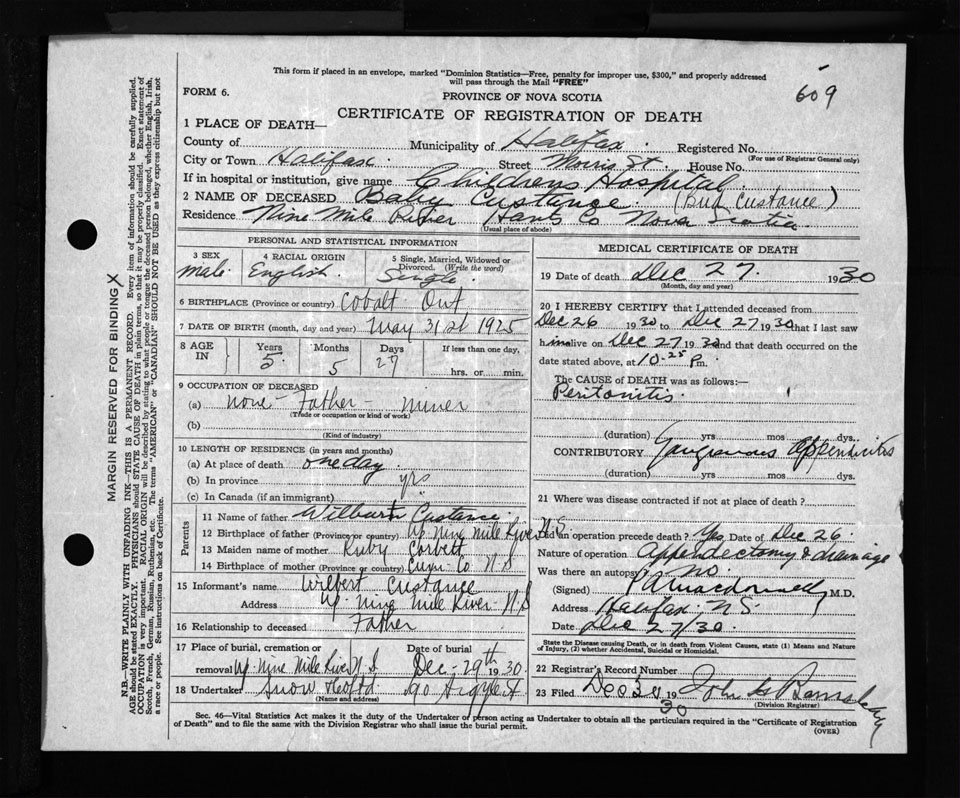 This form if placed in an envelope, marked "Dominion Statistics—Free, penalty for improper use, $300," and properly addressed
will pass through the Mail "FREE"
609
FORM 6.
PROVINCE OF NOVA SCOTIA
CERTIFICATE OF REGISTRATION OF DEATH
1 PLACE OF DEATH—
County of Municipality of Halifax Registered No.
(For use of Registrar General only)
City or Town Halifax Street Morris St. House No.
If in hospital or institution, give name Childrens Hospital
2 NAME OF DECEASED Baby Custance (Bud Custance)
Residence Nine Mile River Hants Co Nova Scotia
(Usual place of abode)
PERSONAL AND STATISTICAL INFORMATION
3 SEX 4 RACIAL ORIGIN 5 Single, Married, Widowed or
Divorced. (Write the word)
Male. English. Single.
6 BIRTHPLACE (Province or country) Cobalt Ont
7 DATE OF BIRTH (month, day and year) May 31st 1925
8 AGE IN Years Months Days If less than one day,
5 5 27 hrs. or min.
9 OCCUPATION OF DECEASED
(a) none - Father - miner
(Trade or occupation or kind of work)
(b)
(Kind of industry)
10 LENGTH OF RESIDENCE (in years and months)
(a) At place of death one day.
(b) In province yrs
(c) In Canada (if an immigrant)
Parents
11 Name of father Wilbert Custance
12 Birthplace of father (Province or country) Up. Nine Mile River N.S.
13 Maiden name of mother Ruby Corbett
14 Birthplace of mother (Province or country) Co N.S
15 Informant's name Wilbert Custance
Address Up. Nine Mile River - N.S
16 Relationship to deceased Father
17 Place of burial, cremation or Date of burial
removal Up. Nine Mile River N.S Dec - 29th 1930.
18 Undertaker Snow & Co Ltd 90 Argyle St
(Name and address)
MEDICAL CERTIFICATE OF DEATH
19 Date of death Dec 27. 1930
(Month, day and year)
20 I HEREBY CERTIFY that I attended deceased from
Dec 26 1930 to Dec 27 1930 that I last saw
him alive on Dec 27 1930 and that death occurred on the
date stated above, at 10-25 Pm.
The CAUSE OF DEATH was as follows:—
Peritonitis.
(duration) yrs mos dys.
CONTRIBUTORY Gangrenous appendicitis
(duration) yrs mos dys.
21 Where was disease contracted if not at place of death?
Did an operation precede death? Yes. Date of Dec 26.
Nature of operation Appendectomy & drainage
Was there an autopsy? no.
(Signed) Macdonald M.D.
Address Halifax. N.S.
Date Dec 27/30.
State the Disease causing Death, or in death from Violent Causes, state (1) Means and Nature
of Injury, (2) whether Accidental, Suicidal or Homicidal.
22 Registrar's Record Number
23 Filed Dec 30 1930 John
(Division Registrar)
Sec. 46—Vital Statistics Act makes it the duty of the Undertaker or person acting as Undertaker to obtain all the particulars required in the "Certificate of Registration
of Death" and to file the same with the Division Registrar who shall issue the burial permit.
(OVER)
MARGIN RESERVED FOR BINDING X
N.B.—WRITE PLAINLY WITH UNFADING INK—THIS IS A PERMANENT RECORD. Every item of information should be carefully supplied.
AGE should be stated EXACTLY. PHYSICIANS should STATE CAUSE OF DEATH in plain terms, so that it may be properly classified. Exact statement of
OCCUPATION is very important. RACIAL ORIGIN will be described by stating to what people or tongue the deceased person belonged, whether English, Irish,
Scotch, French, German, Russian, Ruthenian, etc. The terms "AMERICAN" or "CANADIAN" SHOULD NOT BE USED as they express citizenship but not
a race or people. See instructions on back of Certificate.